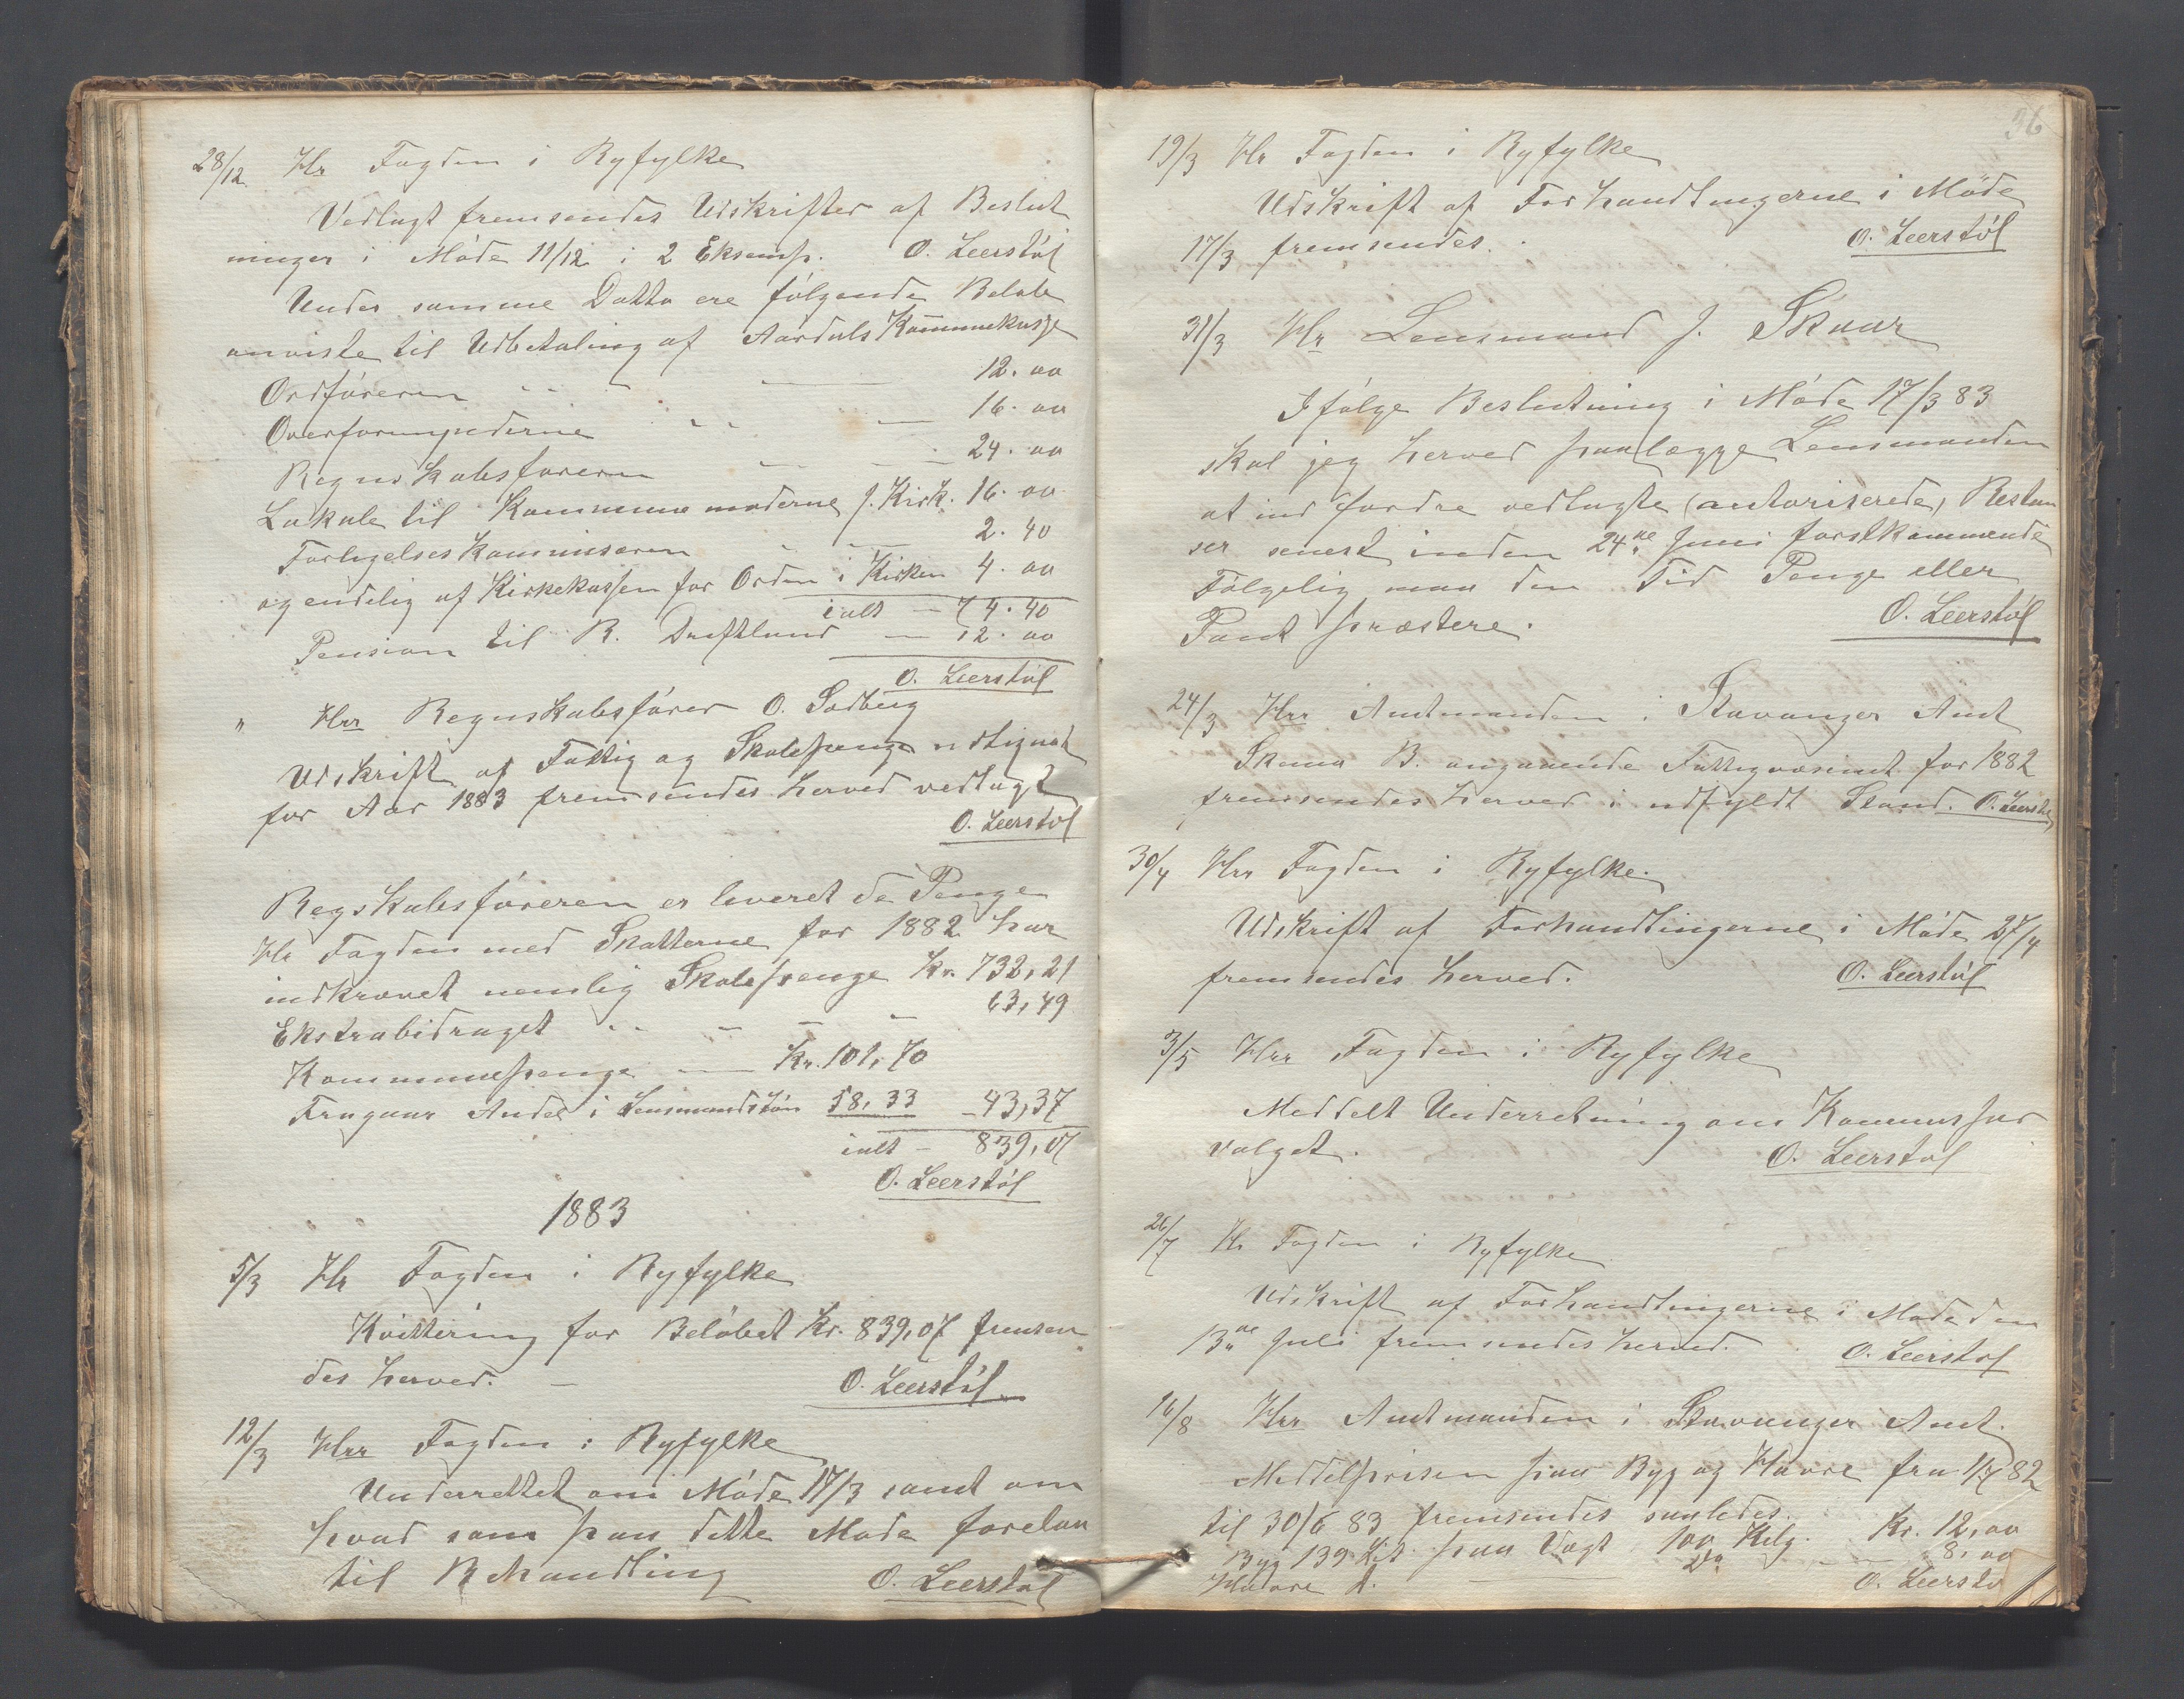 28/12 Hr Fogden i Ryfylke
Vedlagt fremsendes Udskrifter af Beslut
ninger i Møde 11/12 i 2 Eksempl. O. Leerstøl
Under samme Datto ere følgende Beløb
anviste til Udbetaling af Aardals Kommunekasse
Ordføreren 12. 00
Overformynderne 16. 00
Regnskabsføreren 24. 00
Lokale til Kommunemøderne J. Kirk. 16. 00
Forligelseskommisæren 2. 40
og endelig af Kirkekassen for Orden i Kirken 4. 00
ialt - 74. 40
Pension til R. - 12. 00
O. Leerstøl
" Hrr Regnskabsfører O. Sodberg
Udskrift af Fattig og Skolepenge udlignet
for Aar 1883 fremsendes herved vedlagt
O. Leerstøl
Regskabsføreren er leveret de Penge
Hr Fogden med Skatterne for 1882 har
indkrævet nemlig Skolepenge Kr. 732,21
Ekstrabidraget - - - 63,49
Kommunepenge — Kr. 101,70
Fragaar Andel i Lensmandsløn 58,33 - 43,37
ialt - 839,07
O. Leerstøl
1883
5/3 Hr Fogden i Ryfylke
Kvittering for Beløbet Kr. 839,07 fremsen
des herved. - O. Leerstøl
12/3 Hrr Fogden i Ryfylke
Underrettet om Møde 17/3 samt om
hvad som paa dette Møde forelaa
til Behandling O. Leerstøl
36
19/3 Hr Fogden i Ryfylke
Udskrift af Forhandlingerne i Møde
17/3 fremsendes. O. Leerstøl
31/3 Hr Lensmand J. Skaar
Ifølge Beslutning i Møde 17/3 83
skal jeg herved paalægge Lensmanden
at indfordre vedlagte (autoriserede) Restan
ser senest inden 24de Juni førstkommende
Følgelig maa den Tid Penge eller
Pant præstere. O. Leerstøl
24/3 Hrr Amtmanden i Stavanger Amt
Skema B. angaaende Fattigvæsenet for 1882
fremsendes herved i udfyldt Stand. O. Leerstøl
30/4 Hrr Fogden i Ryfylke.
Udskrift af Forhandlingerne i Møde 27/4
fremsendes herved. O. Leerstøl
3/5 Hrr Fogden i Ryfylke
Meddelt Underretning om
valget. O. Leerstøl
26/7 Hr Fogden i Ryfylke
Udskrift af Forhandlingerne i Møde den
13de Juli fremsendes herved. O. Leerstøl
16/8 Hrr Amtmanden i Stavanger Amt.
Middelprisen paa Byg og Havre fra 1/7 82
til 30/6 83 fremsendes saaledes.
Byg 139 Lit. paa Vægt 100 Kilg. Kr. 12,00
Havre d. do - - 8,00
O. Leerstø